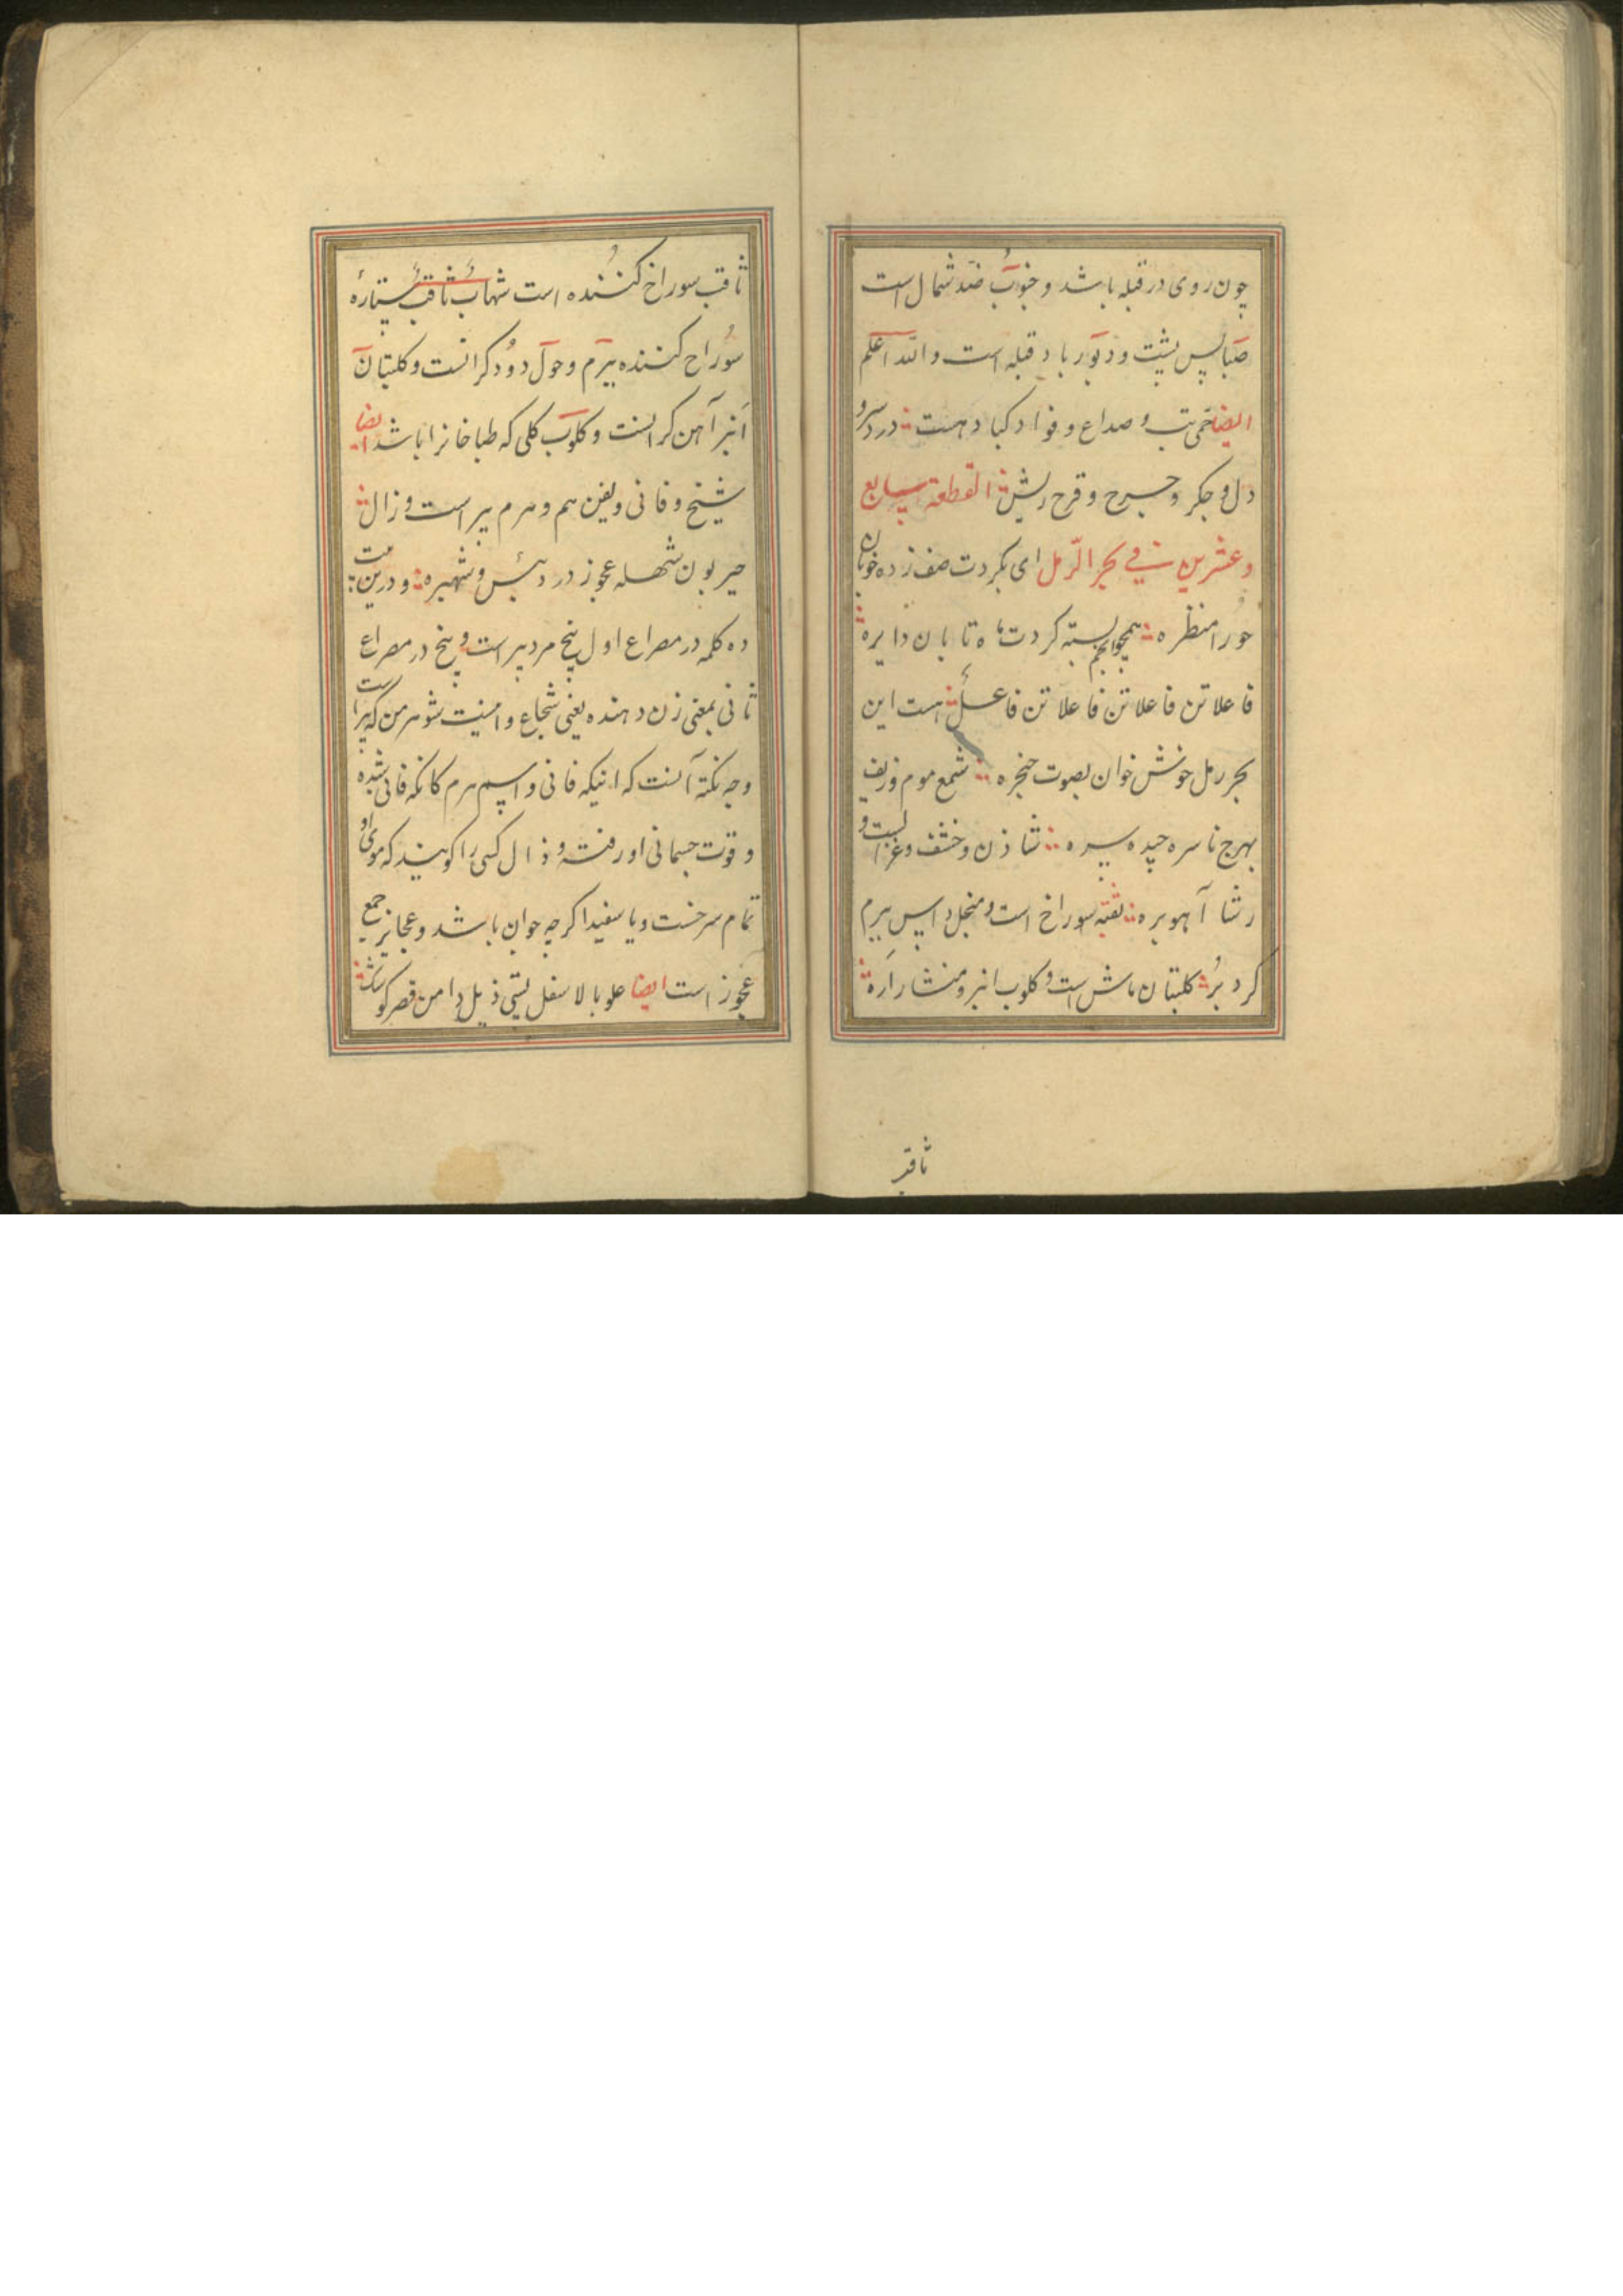 چون روی در قبله باشد و جنوب ضد شمال است
صبا پس پشت و دبور باد قبله است والله اعلم
ایضا حمی تب و صداع و فواد کباد هست در دسر و
دل و جکر و جرح و قرح ریش القطعة سابع
و عشرین فی بحر الرمل ای بکردت صف زده خوبان
حورا منظره همچو انجم بسته کردت ماه تابان دایره
فاعلاتن فاعلاتن فاعلاتن فاعلن هست این
بحر رمل خوش خوان بصوت حنجره شمع موم و زیف
بهرج ناسره جیده سره شاذن و خشف و غزالست و
رشا آهوبره ثقبه سوراخ است و منجل داس بیرم
کرد بر کلبتان ماش است و کلوب انبر و منشار اره
ثاقب
ثاقب سوراخ کننده است شهاب ثاقب ستاره
سوراخ کننده بیرم و حول دودکرانست و کلبتان
انبر آهن کرانست و کلوب کلی که طباخانرا باشد ایضا
شیخ و فانی و یفن هم و هرم پیر است و زال
حیزبون شهله عجوز دردبیس و شهبره و درین بیت
ده کلمه در مصراع اول پنج مرد پیر است و پنج در مصراع
ثانی بمعنی زن دهنده یعنی شجاع و امنیت شوهر من که پیر است
وجه نکته آنست که اینکه فانی و اسم هرم کانکه فانی شده
و قوت جسمانی او رفته و ذال کسی را کویند که موی او
تمام سرخست و یا سفید اکرچه جوان باشد و عجایز جمع
عجوز است ایضا علو بالا سفل پستی ذیل دامن قصر کوشک